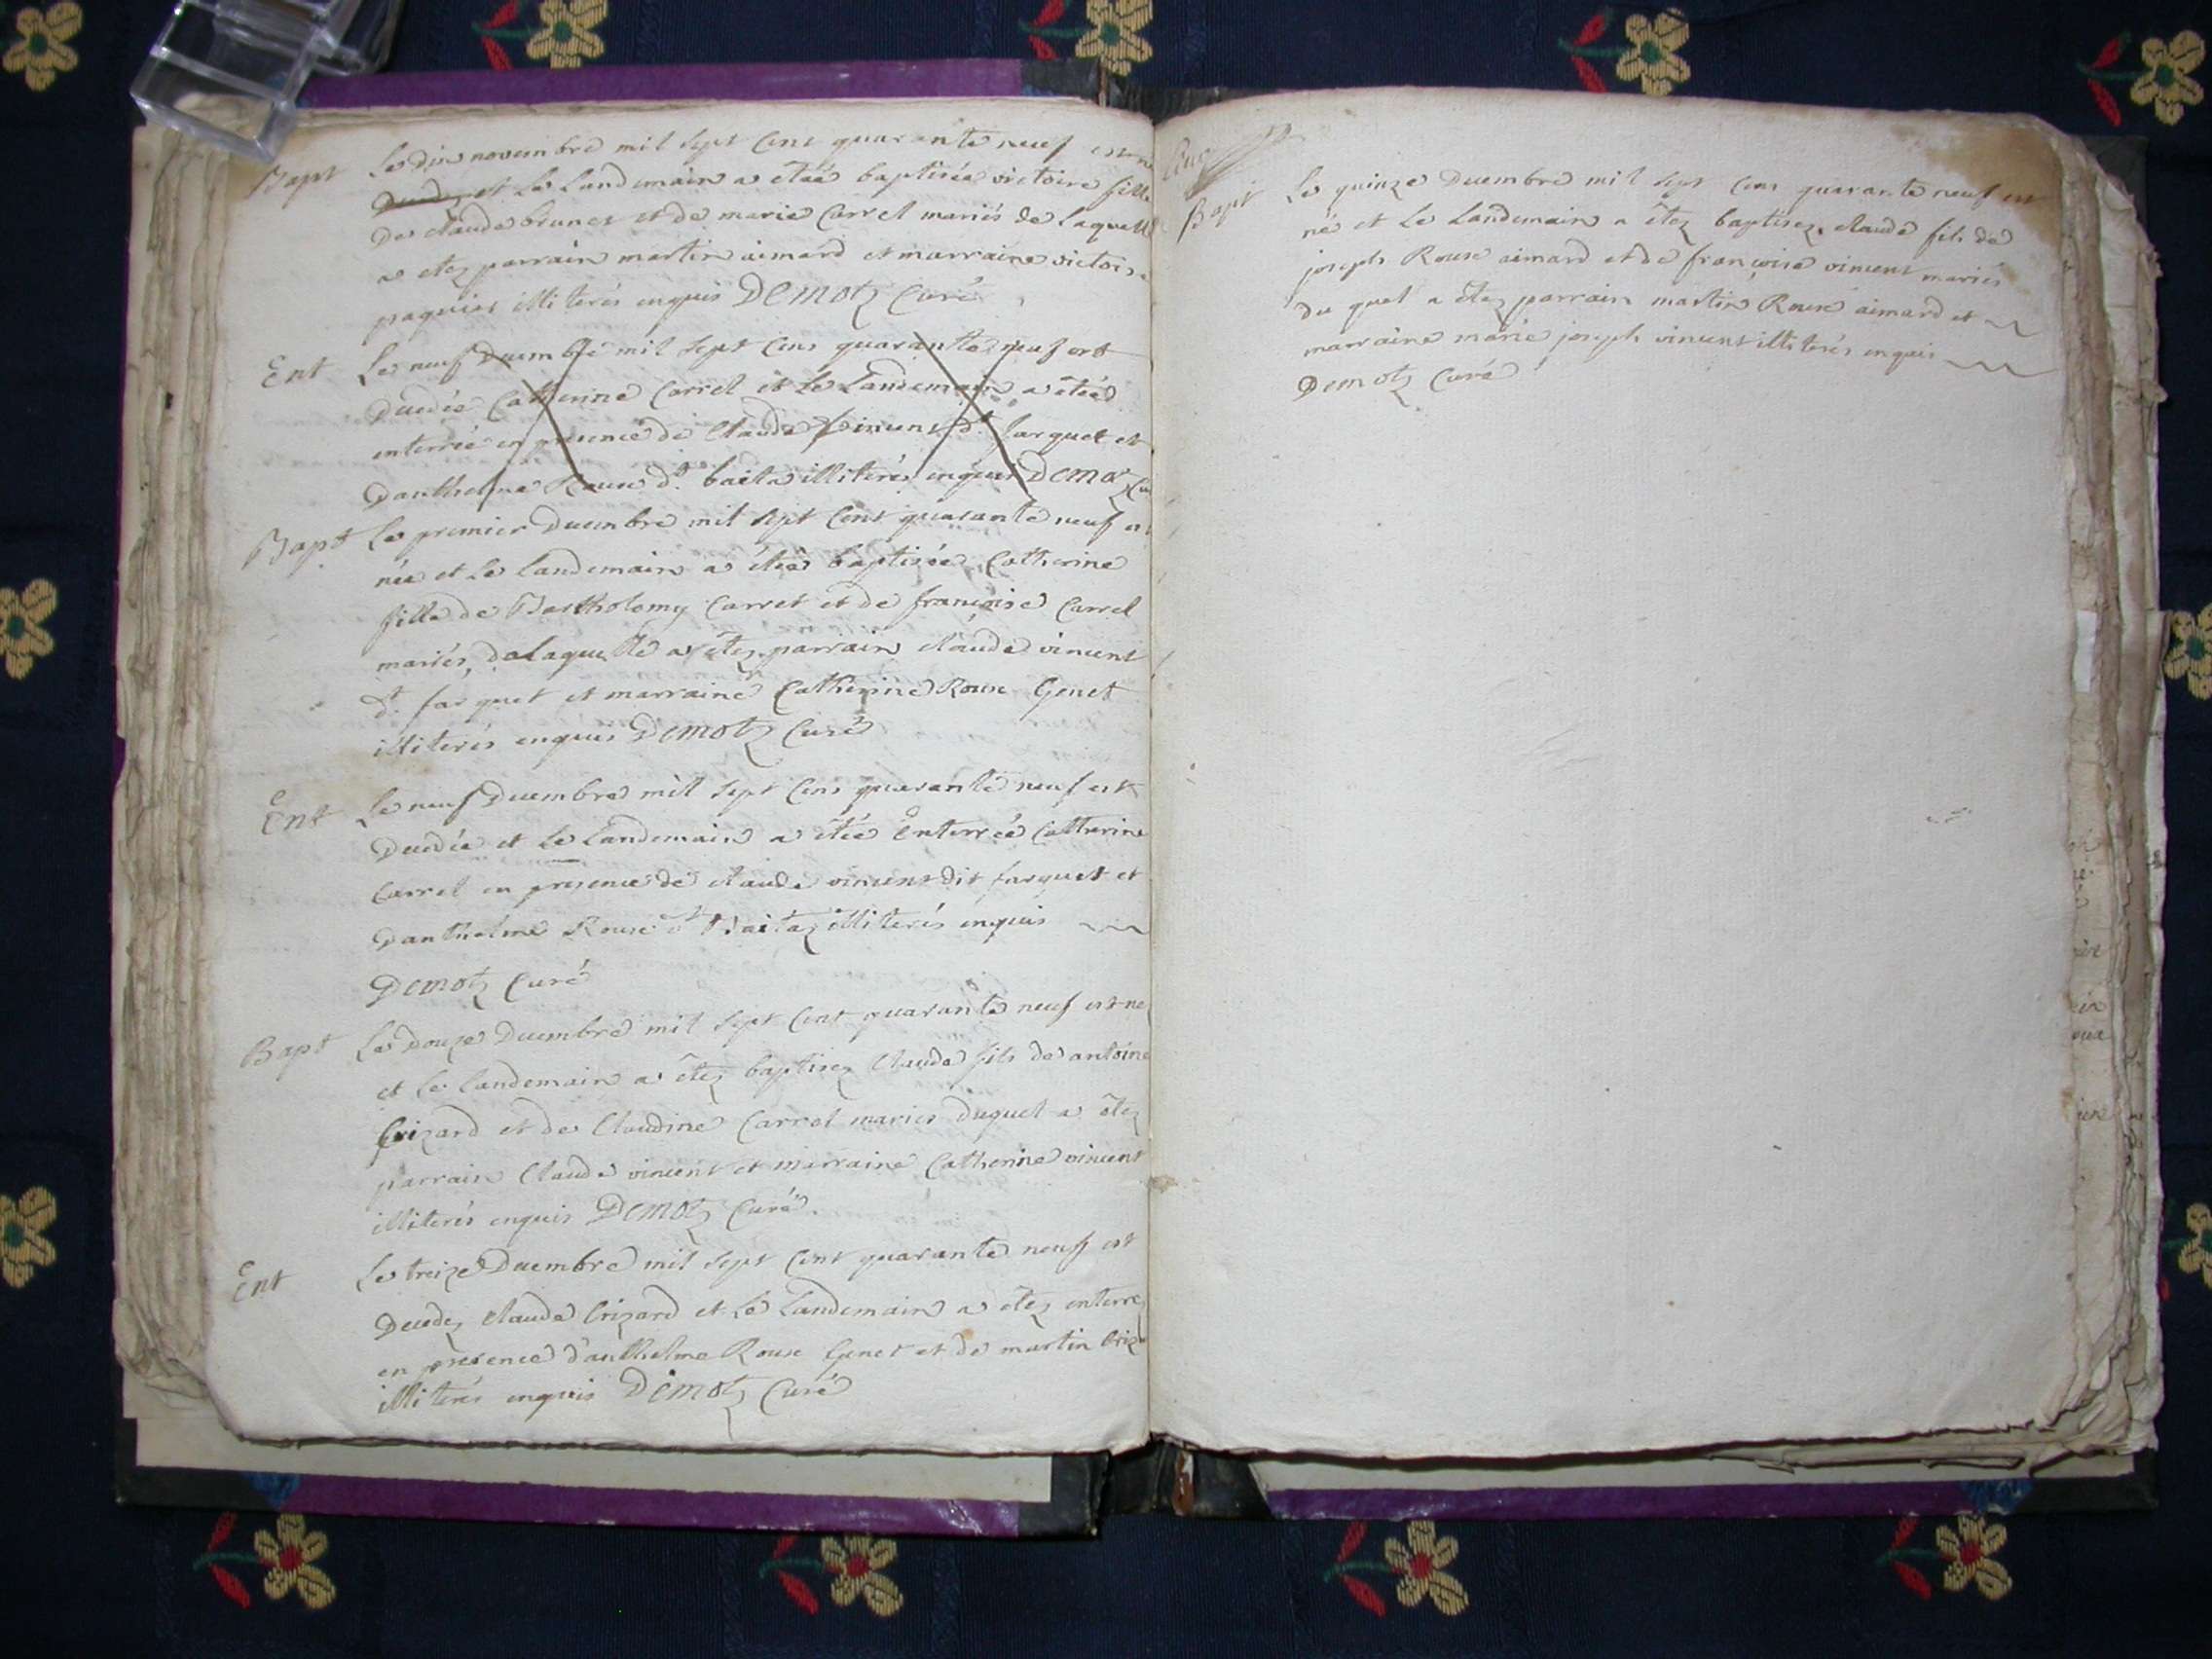 Bapt Le dix novembre mil sept cens quarante neuf est née
et le landemain a étéé baptisée victoire fille
de claude brunet et de marie Carrel mariés de laquelle
a etez parrain martin aimard et marraine victoire
illiterés enquis Demotz Curé
Ent Le neuf Decembre mil sept cens quarante neuf est
Decedée Catherine Carrel et le landemain a étéé
enterrée en presence de Claude vincent dt. farquet et
Danthelme Roux dt. baita illiterés enquis Demotz Cu
Bapt Le premier Decembre mil sept cent quarante neuf est
née et le landemain a étéé baptisée Catherine
fille de Bartholemy Carret et de françoise Carrel
mariés, de laquelle a étez parrain claude vincent
dt. farquet et marraine Catherine Roux Genet
illiterés enquis Demotz Curé
Ent Le neuf Decembre mil sept cens quarante neuf est
Decedée et le landemain a étéé Enterrée Catherine
Carrel en presence de claude vincent dit farquet et
Danthelme Roux dt Baitaz illiterés enquis
Demotz Curé
Bapt Le douze Decembre mil sept cent quarante neuf est né
et le landemain a étez baptisez Claude fils de antoine
Crizard et de Claudine Carrel mariés duquel a étez
parrain Claude vincent et marraine Catherine vincent
illiterés enquis Demotz Curé.
Ent Le treize Decembre mil sept cent quarante neuf est
Decedez claude Crizard et le landemain a étez enterré
en presence d'anthelme Roux Genet et de martin Criz
illiterés enquis Demotz Curé
Bapt Le quinze Decembre mil sept cens quarante neuf est
né et le landemain a étez baptisez claude fils de
joseph Roux aimard et de françoise vincent mariés
du quel a étez parrain martin Roux aimard et
marraine marie joseph vincent illiterés enquis
Demotz Curé